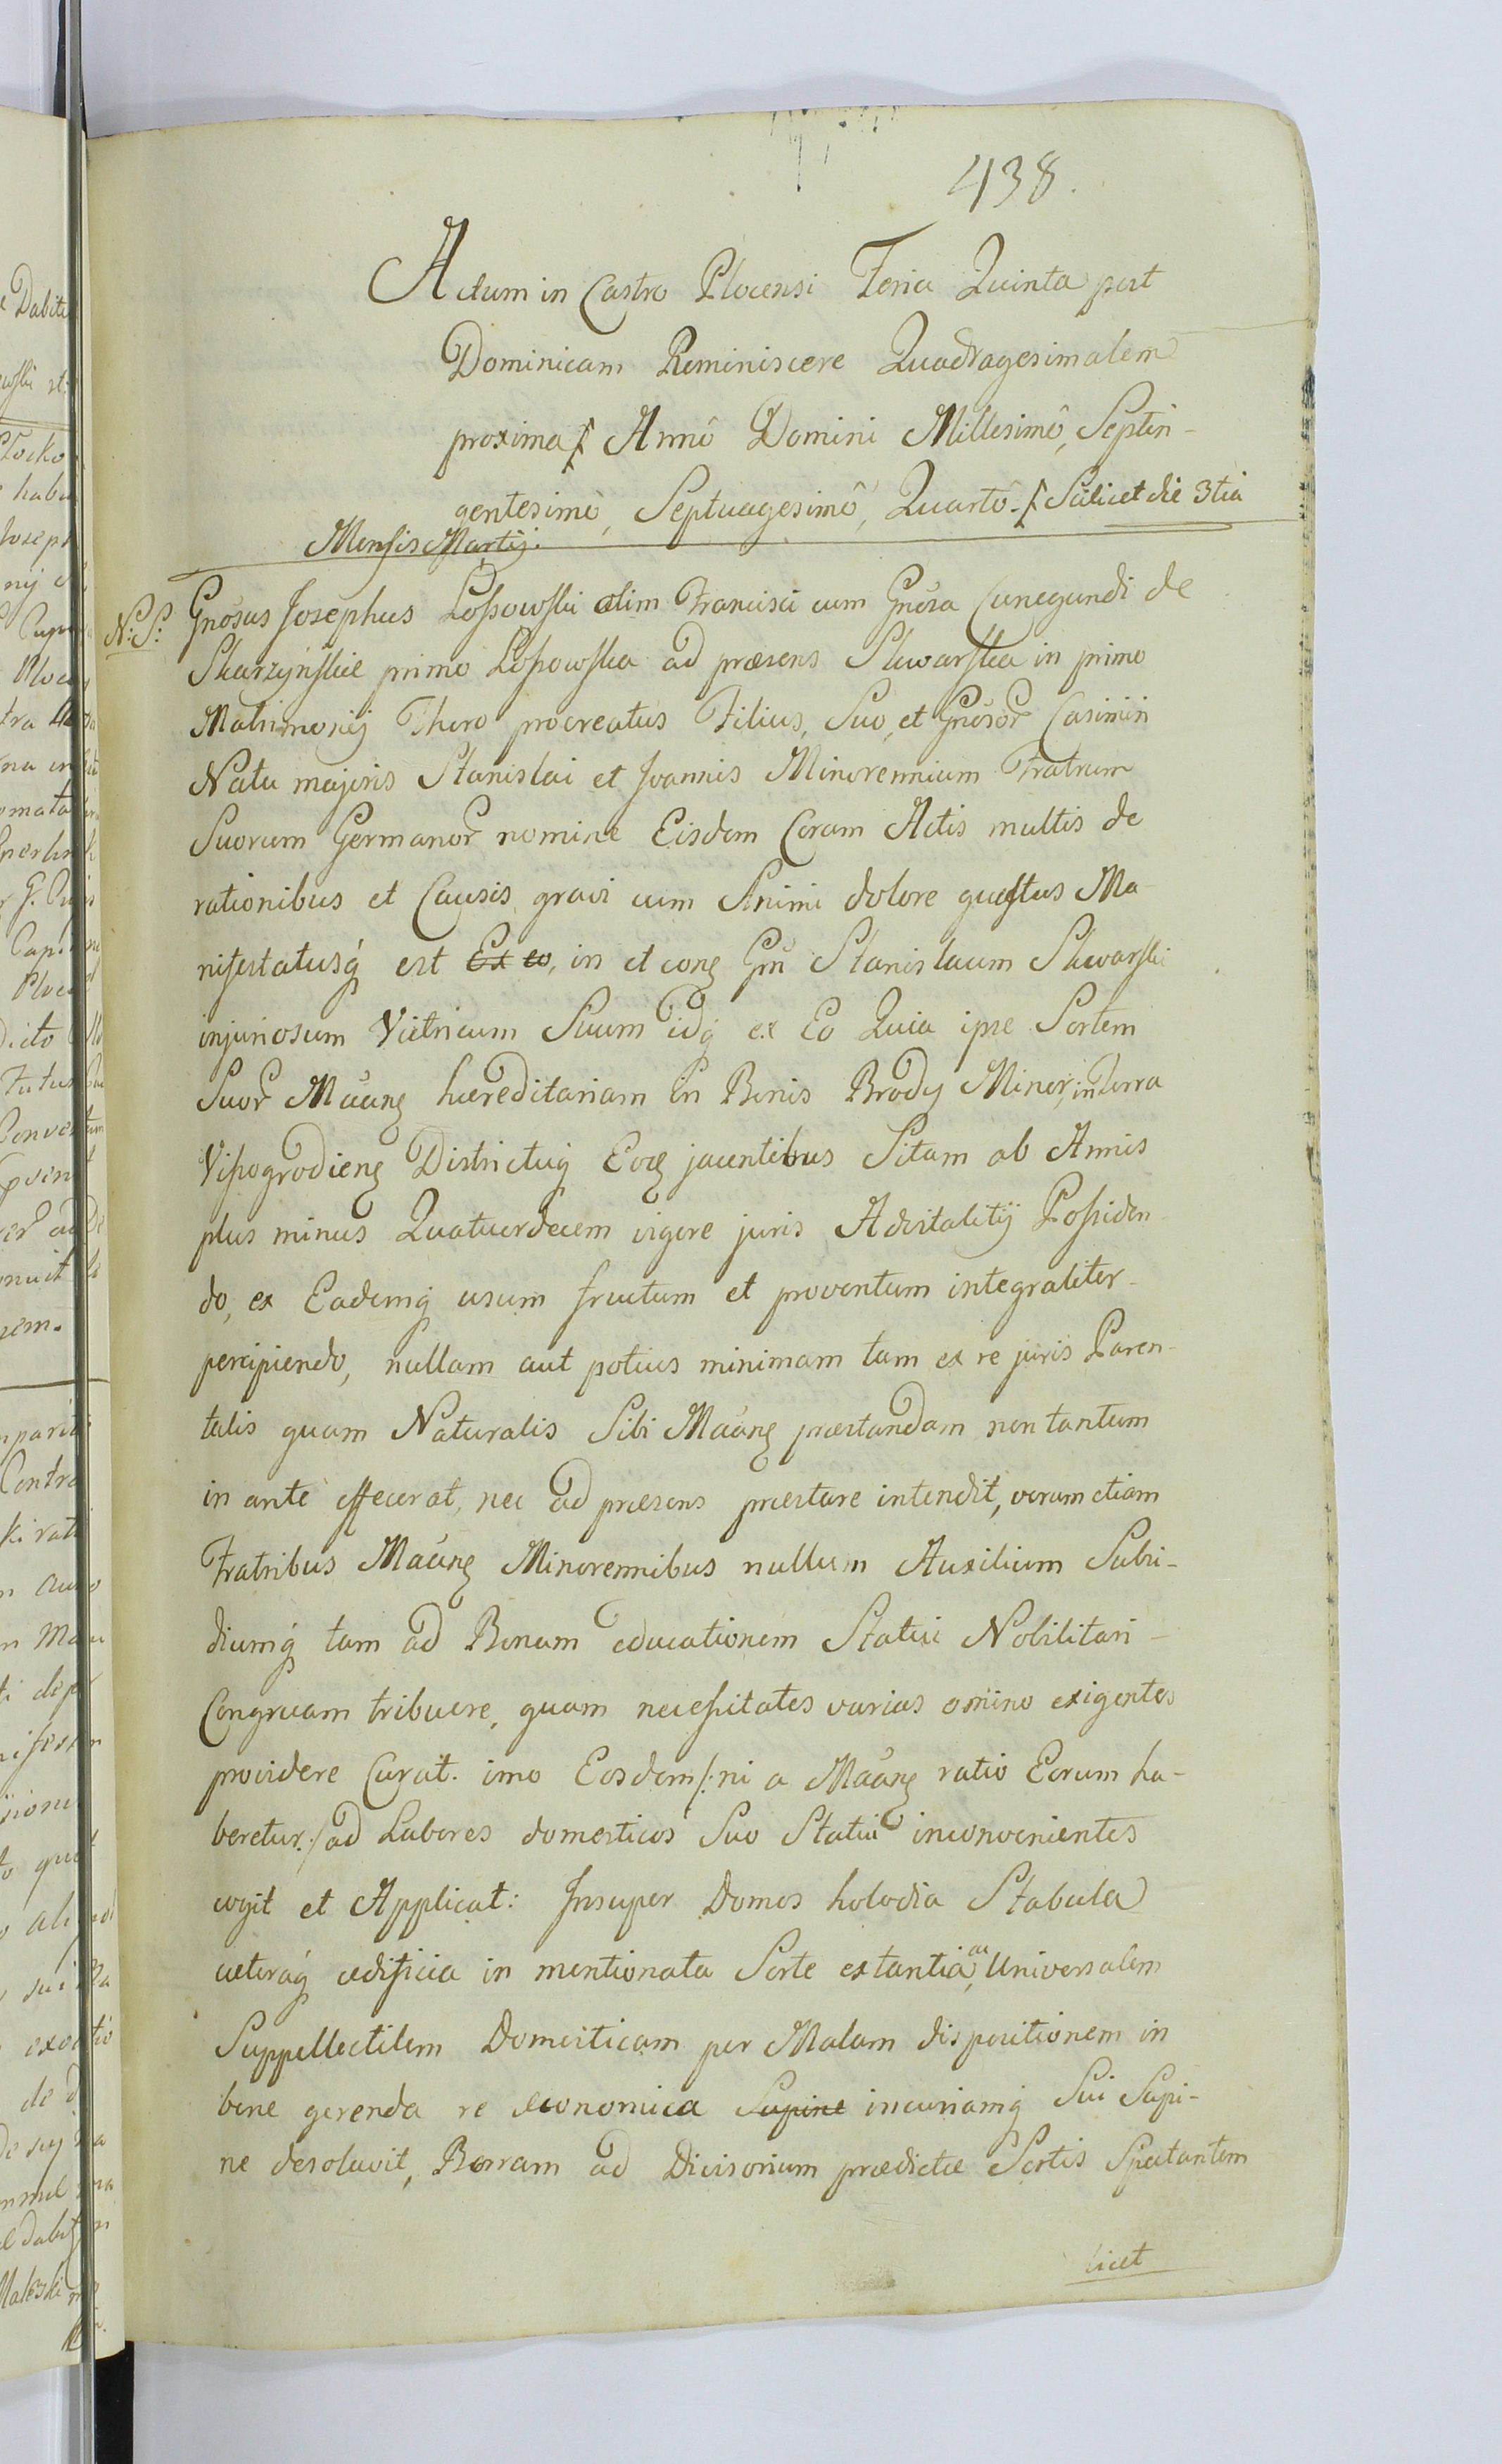 438.
Actum in Castro Plocensi Feria Quinta post
Dominicam Reminiscere Quadragesimalem
proxima Annô Domini Millesimô, Septin-
gentesimô, Septuagesimô, Quartô. Scilicet die 3tia
Mensis Martij.
N: S: Gnosus Josephus Lossowski olim Francisci cum Gnosa Cunegundi de
Skarzynskie primo Lossowska ad præsens Skwarska in primo
Matrimonij Thoro procreatus Filius, Suo, et Gnosor Casimiri
Natu majoris Stanislai et Joannis Minorennium Fratrum
Suorum Germanor nomine Eisdem Coram Actis multis de
rationibus et Causis, gravi cum Animi dolore questus Ma-
nifestatusq est Ex eo, in et cong Gnu Stanislaum Skwarski
injuriosum Vitricum Suum idq ex Eo Quia ipse Sortem
Suor Maang hæreditariam in Bonis Brody Minor, in Terra
Vissogrodieng Districtuq Eoq jacentibus Sitam ab Annis
plus minus Quatuordecem vigore juris Advitalitij Possiden-
do, ex Eademq usum fructum et proventum integraliter
percipiendo, nullam aut potius minimam tam ex re juris Paren-
talis quam Naturalis Sibi Maang præstandam non tantum
in ante effecerat, nec ad præsens præstare intendit, verum etiam
Fratribus Maang Minorennibus nullum Auxilium Subsi-
diumq tam ad Bonam educationem Statui Nobilitari
Congruam tribuere, quam necessitates varias omino exigentes
providere Curat. imo Eosdem /: ni a Maang ratio Eorum ha-
beretur :/ ad Labores domesticos Suo Statui inconvenientes
cogit et Applicat: Insuper Domos holodia Stabula
cæteraq ædificia in mentionata Sorte extantia, ac Universalem
Suppellectilem Domesticam per Malam dispositionem in
bene gerenda re economica Supine incuriamq Sui Supi-
ne desolavit, Borram ad Divisorium prædictæ Sortis Spectantem
licet